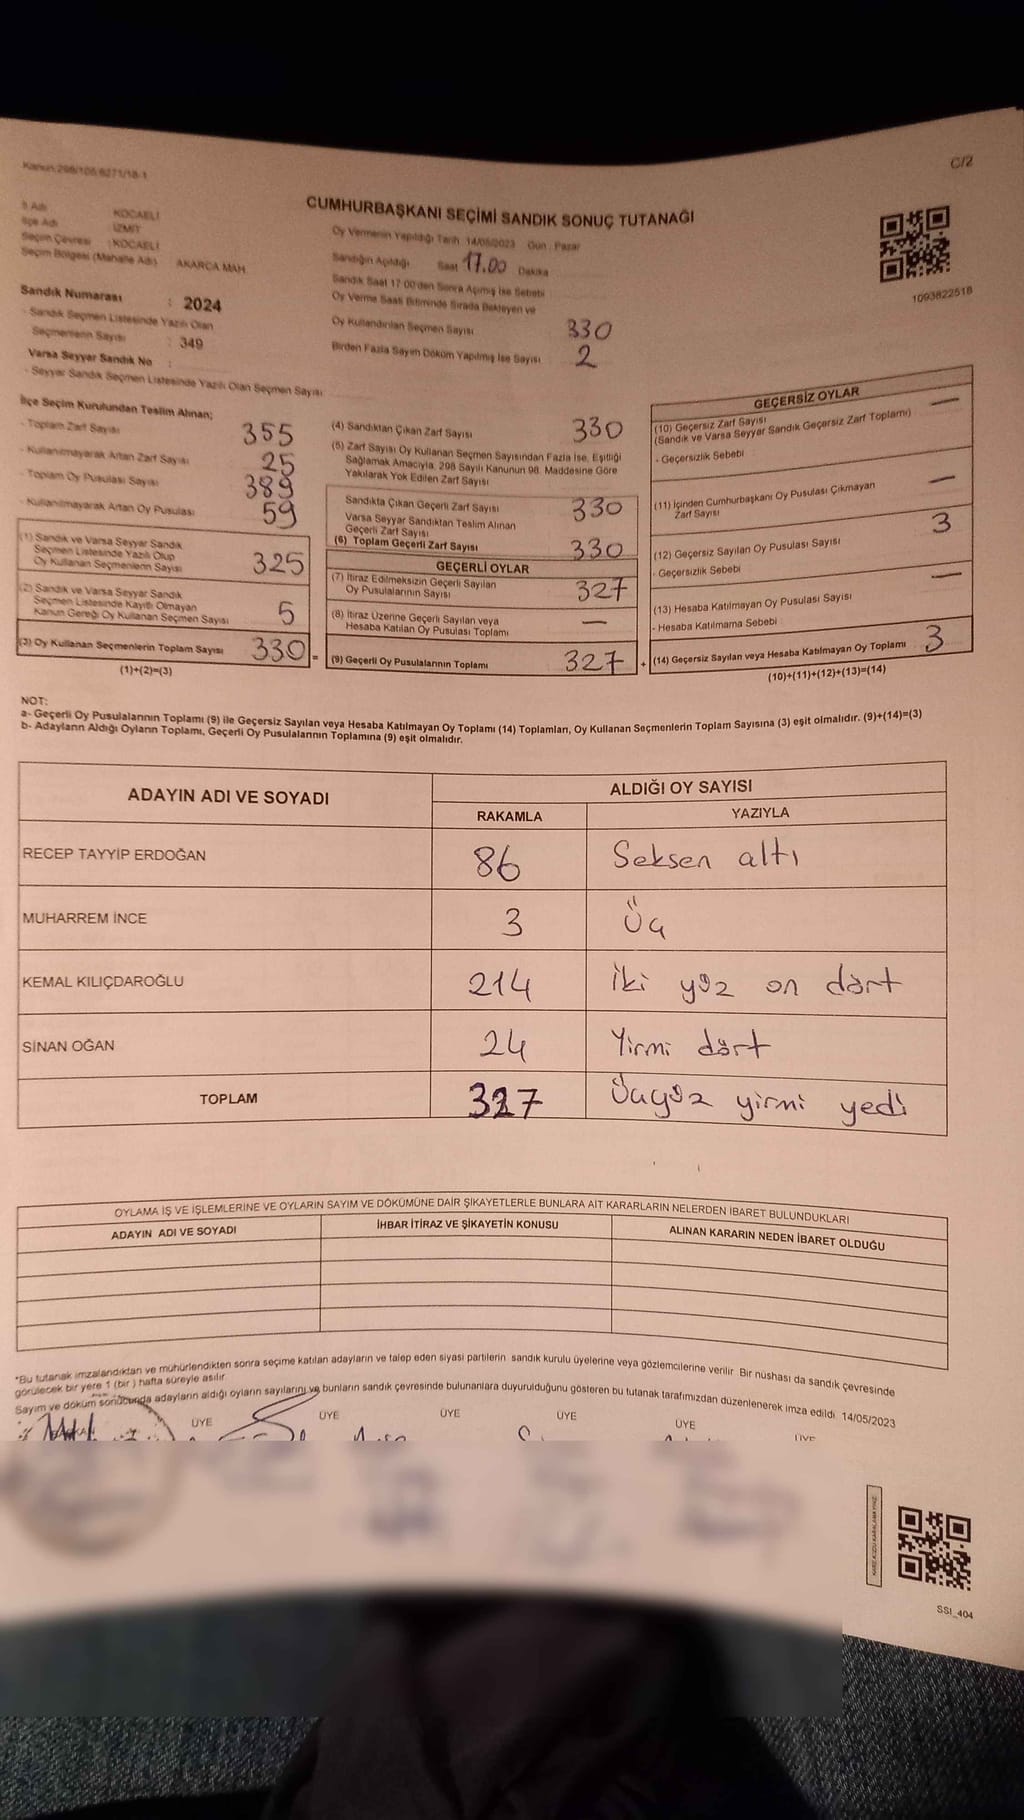 Kanun:298/105 6271/18-1
C/2
İl Adı : KOCAELİ
İlçe Adı : İZMİT
Seçim Çevresi : KOCAELİ
Seçim Bölgesi (Mahalle Adı) : AKARCA MAH.
Sandık Numarası : 2024
- Sandık Seçmen Listesinde Yazılı Olan
Seçmenlerin Sayısı : 349
Varsa Seyyar Sandık No :
- Seyyar Sandık Seçmen Listesinde Yazılı Olan Seçmen Sayısı :
CUMHURBAŞKANI SEÇİMİ SANDIK SONUÇ TUTANAĞI
Oy Vermenin Yapıldığı Tarih : 14/05/2023 Gün : Pazar
Sandığın Açıldığı Saat 17.00 Dakika
Sandık Saat 17:00'den Sonra Açımış İse Sebebi
Oy Verme Saati Bitiminde Sırada Bekleyen ve
Oy Kullandırılan Seçmen Sayısı 330
Birden Fazla Sayım Döküm Yapılmış İse Sayısı 2
1093822518
İlçe Seçim Kurulundan Teslim Alınan;
- Toplam Zarf Sayısı 355
- Kullanılmayarak Artan Zarf Sayısı 25
- Toplam Oy Pusulası Sayısı 389
- Kullanılmayarak Artan Oy Pusulası 59
(1) Sandık ve Varsa Seyyar Sandık
Seçmen Listesinde Yazılı Olup
Oy Kullanan Seçmenlerin Sayısı 325
(2) Sandık ve Varsa Seyyar Sandık
Seçmen Listesinde Kayıtlı Olmayan
Kanun Gereği Oy Kullanan Seçmen Sayısı 5
(3) Oy Kullanan Seçmenlerin Toplam Sayısı 330 =
(1)+(2)=(3)
(4) Sandıktan Çıkan Zarf Sayısı 330
(5) Zarf Sayısı Oy Kullanan Seçmen Sayısından Fazla İse, Eşitliği
Sağlamak Amacıyla, 298 Sayılı Kanunun 98. Maddesine Göre
Yakılarak Yok Edilen Zarf Sayısı
Sandıkta Çıkan Geçerli Zarf Sayısı 330
Varsa Seyyar Sandıktan Teslim Alınan
Geçerli Zarf Sayısı
(6) Toplam Geçerli Zarf Sayısı 330
GEÇERLİ OYLAR
(7) İtiraz Edilmeksizin Geçerli Sayılan
Oy Pusulalarının Sayısı 327
(8) İtiraz Üzerine Geçerli Sayılan veya
Hesaba Katılan Oy Pusulası Toplamı —
(9) Geçerli Oy Pusulalarının Toplamı 327 +
GEÇERSİZ OYLAR
(10) Geçersiz Zarf Sayısı —
(Sandık ve Varsa Seyyar Sandık Geçersiz Zarf Toplamı)
- Geçersizlik Sebebi
(11) İçinden Cumhurbaşkanı Oy Pusulası Çıkmayan —
Zarf Sayısı
(12) Geçersiz Sayılan Oy Pusulası Sayısı 3
- Geçersizlik Sebebi
(13) Hesaba Katılmayan Oy Pusulası Sayısı —
- Hesaba Katılmama Sebebi
(14) Geçersiz Sayılan veya Hesaba Katılmayan Oy Toplamı 3
(10)+(11)+(12)+(13)=(14)
NOT:
a- Geçerli Oy Pusulalarının Toplamı (9) ile Geçersiz Sayılan veya Hesaba Katılmayan Oy Toplamı (14) Toplamları, Oy Kullanan Seçmenlerin Toplam Sayısına (3) eşit olmalıdır. (9)+(14)=(3)
b- Adayların Aldığı Oyların Toplamı, Geçerli Oy Pusulalarının Toplamına (9) eşit olmalıdır.
ADAYIN ADI VE SOYADI ALDIĞI OY SAYISI
RAKAMLA YAZIYLA
RECEP TAYYİP ERDOĞAN 86 Seksen altı
MUHARREM İNCE 3 Üç
KEMAL KILIÇDAROĞLU 214 İki yüz on dört
SİNAN OĞAN 24 Yirmi dört
TOPLAM 327 Üçyüz yirmi yedi
OYLAMA İŞ VE İŞLEMLERİNE VE OYLARIN SAYIM VE DÖKÜMÜNE DAİR ŞİKAYETLERLE BUNLARA AİT KARARLARIN NELERDEN İBARET BULUNDUKLARI
ADAYIN ADI VE SOYADI İHBAR İTİRAZ VE ŞİKAYETİN KONUSU ALINAN KARARIN NEDEN İBARET OLDUĞU
*Bu tutanak imzalandıktan ve mühürlendikten sonra seçime katılan adayların ve talep eden siyasi partilerin sandık kurulu üyelerine veya gözlemcilerine verilir. Bir nüshası da sandık çevresinde
görülecek bir yere 1 (bir ) hafta süreyle asılır.
Sayım ve döküm sonucunda adayların aldığı oyların sayılarını ve bunların sandık çevresinde bulunanlara duyurulduğunu gösteren bu tutanak tarafımızdan düzenlenerek imza edildi. 14/05/2023
ÜYE ÜYE ÜYE ÜYE ÜYE ÜYE
SSI_404